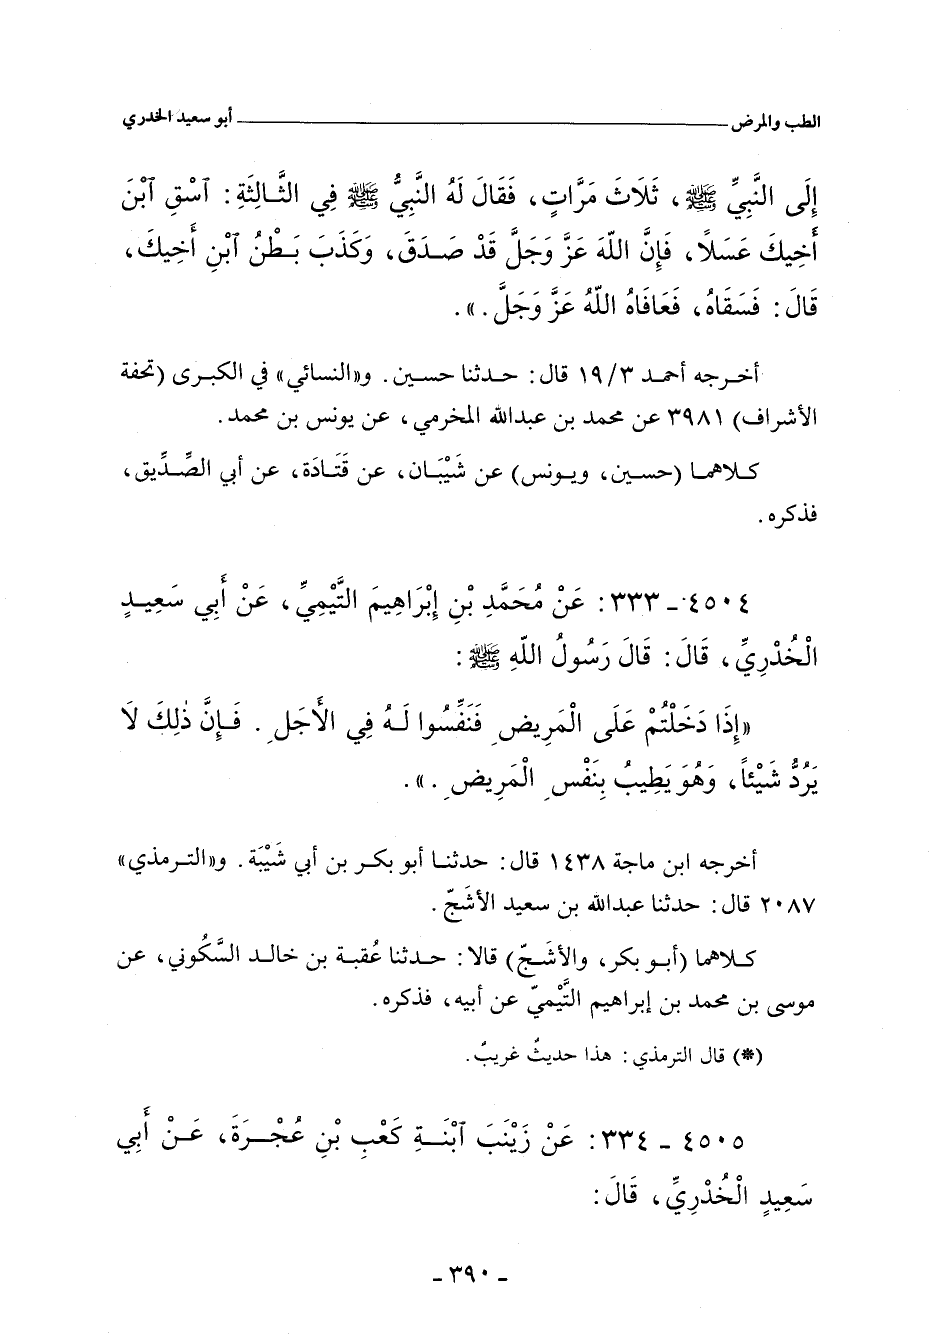 الطب والمرض ــــــــــــــــــــــــــــــــــــــــ أبو سعيد الخدري
إِلَى النَّبِيِّ ﷺ، ثَلَاثَ مَرَّاتٍ، فَقَالَ لَهُ النَّبِيُّ ﷺ فِي الثَّالِثَةِ: ٱسْقِ ٱبْنَ
أَخِيكَ عَسَلاً، فَإِنَّ اللّهَ عَزَّ وَجَلَّ قَدْ صَدَقَ، وَكَذَبَ بَطْنُ ٱبْنِ أَخِيكَ،
قَالَ: فَسَقَاهُ، فَعَافَاهُ اللّهُ عَزَّ وَجَلَّ.».
أخرجه أحمد ١٩/٣ قال: حدثنا حسين. و«النسائي» في الكبرى (تحفة
الأشراف) ٣٩٨١ عن محمد بن عبدالله المخرمي، عن يونس بن محمد.
كلاهما (حسين، ويونس) عن شَيْبَان، عن قَتَادَة، عن أبي الصِّدِّيق،
فذكره.
٤٥٠٤ - ٣٣٣: عَنْ مُحَمَّدِ بْنِ إِبْرَاهِيمَ التَّيْمِيِّ، عَنْ أَبِي سَعِيدٍ
الْخُدْرِيِّ، قَالَ: قَالَ رَسُولُ اللّهِ ﷺ:
«إِذَا دَخَلْتُمْ عَلَى الْمَرِيضِ فَنَفِّسُوا لَهُ فِي الأَجَلِ. فَإِنَّ ذٰلِكَ لَا
يَرُدُّ شَيْئاً، وَهُوَ يَطِيبُ بِنَفْسِ الْمَرِيضِ.».
أخرجه ابن ماجة ١٤٣٨ قال: حدثنا أبو بكر بن أبي شَيْبَة. و«الترمذي»
٢٠٨٧ قال: حدثنا عبدالله بن سعيد الأشَجّ.
كلاهما (أبو بكر، والأشَجّ) قالا: حدثنا عُقبة بن خالد السَّكُوني، عن
موسى بن محمد بن إبراهيم التَّيْميّ عن أبيه، فذكره.
(*) قال الترمذي: هذا حديثٌ غريبٌ.
٤٥٠٥ - ٣٣٤: عَنْ زَيْنَبَ ٱبْنَةِ كَعْبِ بْنِ عُجْرَةَ، عَنْ أَبِي
سَعِيدٍ الْخُدْرِيِّ، قَالَ:
- ٣٩٠ -